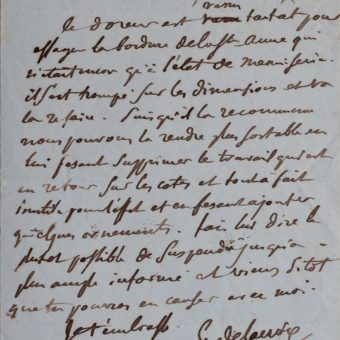 venu
le doreur est tantôt pour
essayer la bordure de la Ste Anne qui
n'étant encor qu'à l'état de menuiserie.
il s'est trompé sur les dimensions et va
la refaire. Puisqu'il la recommence
nous pouvons la rendre plus sortable en
lui fesant supprimer le travail qui est
en retour sur les cotés et tout à fait
inutile pour l'effet et en fesant ajouter
quelques ornements. fais lui dire le
plutot possible de suspendre jusqu'à
plus ample informé et viens sitot
que tu pourras en causer avec moi.
Je t'embrasse
E. Delacroix